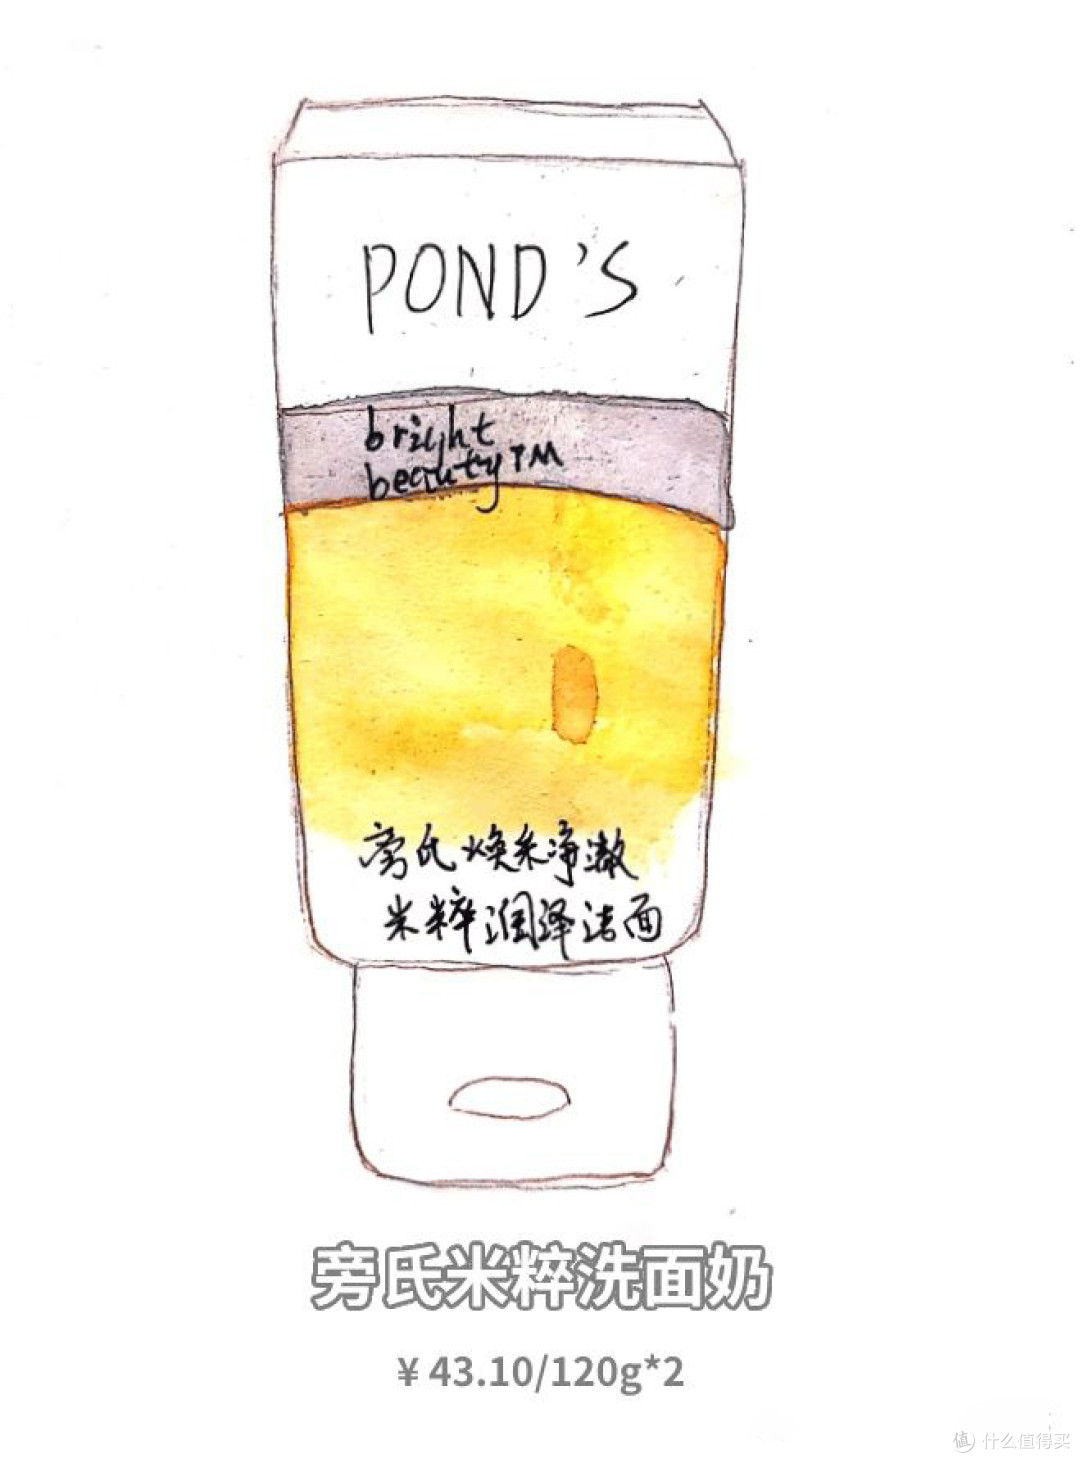 POND'S
bright
beautyTM
旁氏焕采净澈
米粹润泽洁面
旁氏米粹洗面奶
¥43.10/120g*2
值 什么值得买